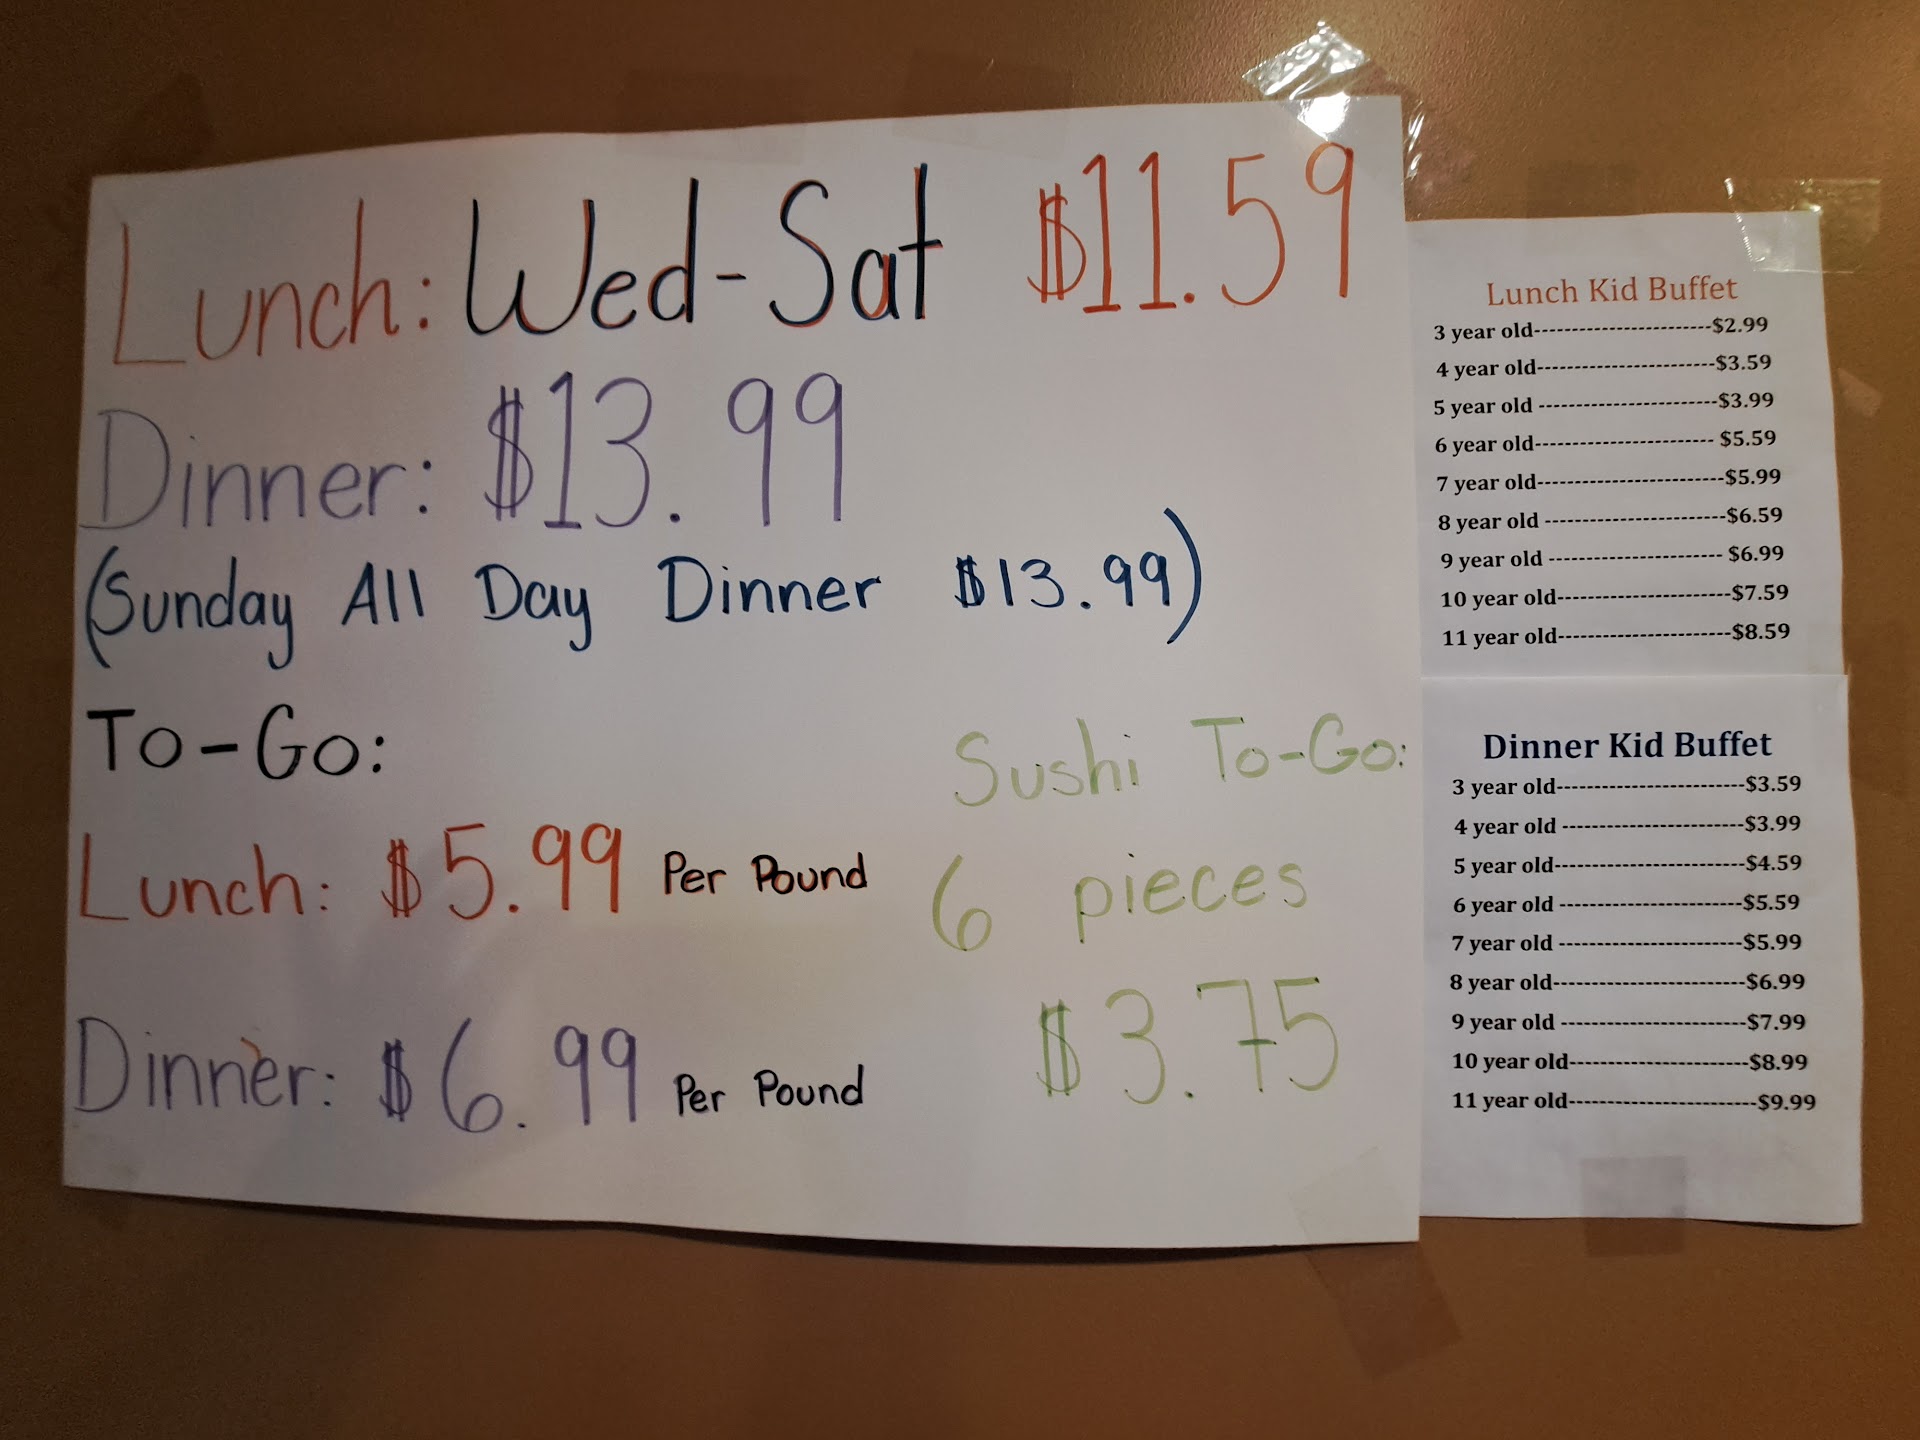 Lunch: Wed-Sat $11.59
Dinner: $13.99
(Sunday All Day Dinner $13.99)
To-Go:
Lunch: $5.99 Per Pound
Dinner: $6.99 Per Pound
Sushi To-Go:
6 pieces
$3.75
Lunch Kid Buffet
3 year old------------------------$2.99
4 year old------------------------$3.59
5 year old ------------------------$3.99
6 year old------------------------ $5.59
7 year old-------------------------$5.99
8 year old ------------------------$6.59
9 year old ----------------------- $6.99
10 year old-----------------------$7.59
11 year old-----------------------$8.59
Dinner Kid Buffet
3 year old-------------------------$3.59
4 year old ------------------------$3.99
5 year old-------------------------$4.59
6 year old ------------------------$5.59
7 year old ------------------------$5.99
8 year old-------------------------$6.99
9 year old ------------------------$7.99
10 year old------------------------$8.99
11 year old-------------------------$9.99